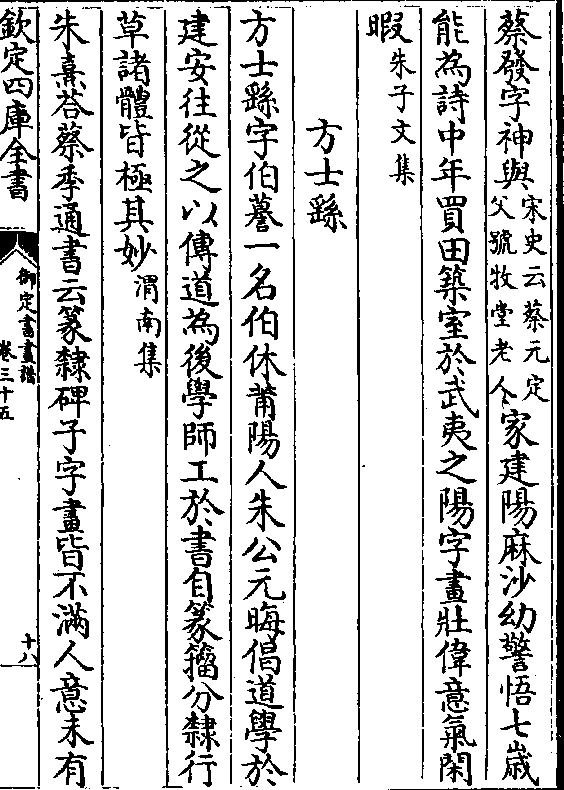 蔡發字神與宋史云蔡元定父號牧堂老人家建陽麻沙幼警悟七歲
能為詩中年買田築室於武夷之陽字畫壯偉意氣閑
暇朱子文集
方士繇
方士繇字伯謩一名伯休莆陽人朱公元晦倡道學於
建安往從之以傳道為後學師工於書自篆籀分隸行
草諸體皆極其妙渭南集
朱熹荅蔡季通書云篆隸碑子字畫皆不滿人意未有
欽定四庫全書
御定書畫譜
卷三十五
十八